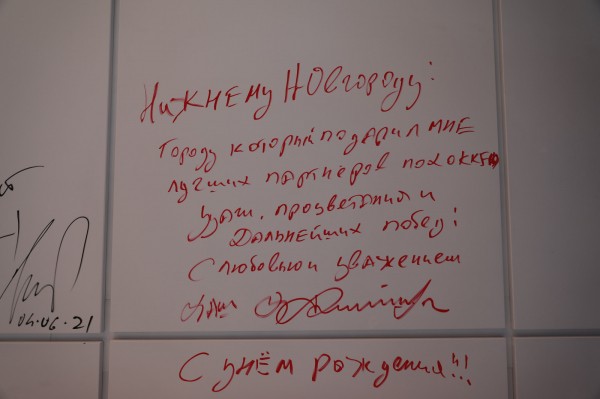 Нижнему Новгороду!
Городу который подарил мне
лучших партнёров по хоккею
Удачи, процветания и
Дальнейших побед!
С любовью и уважением
Ваш
С днём рождения!!!
04.06.21